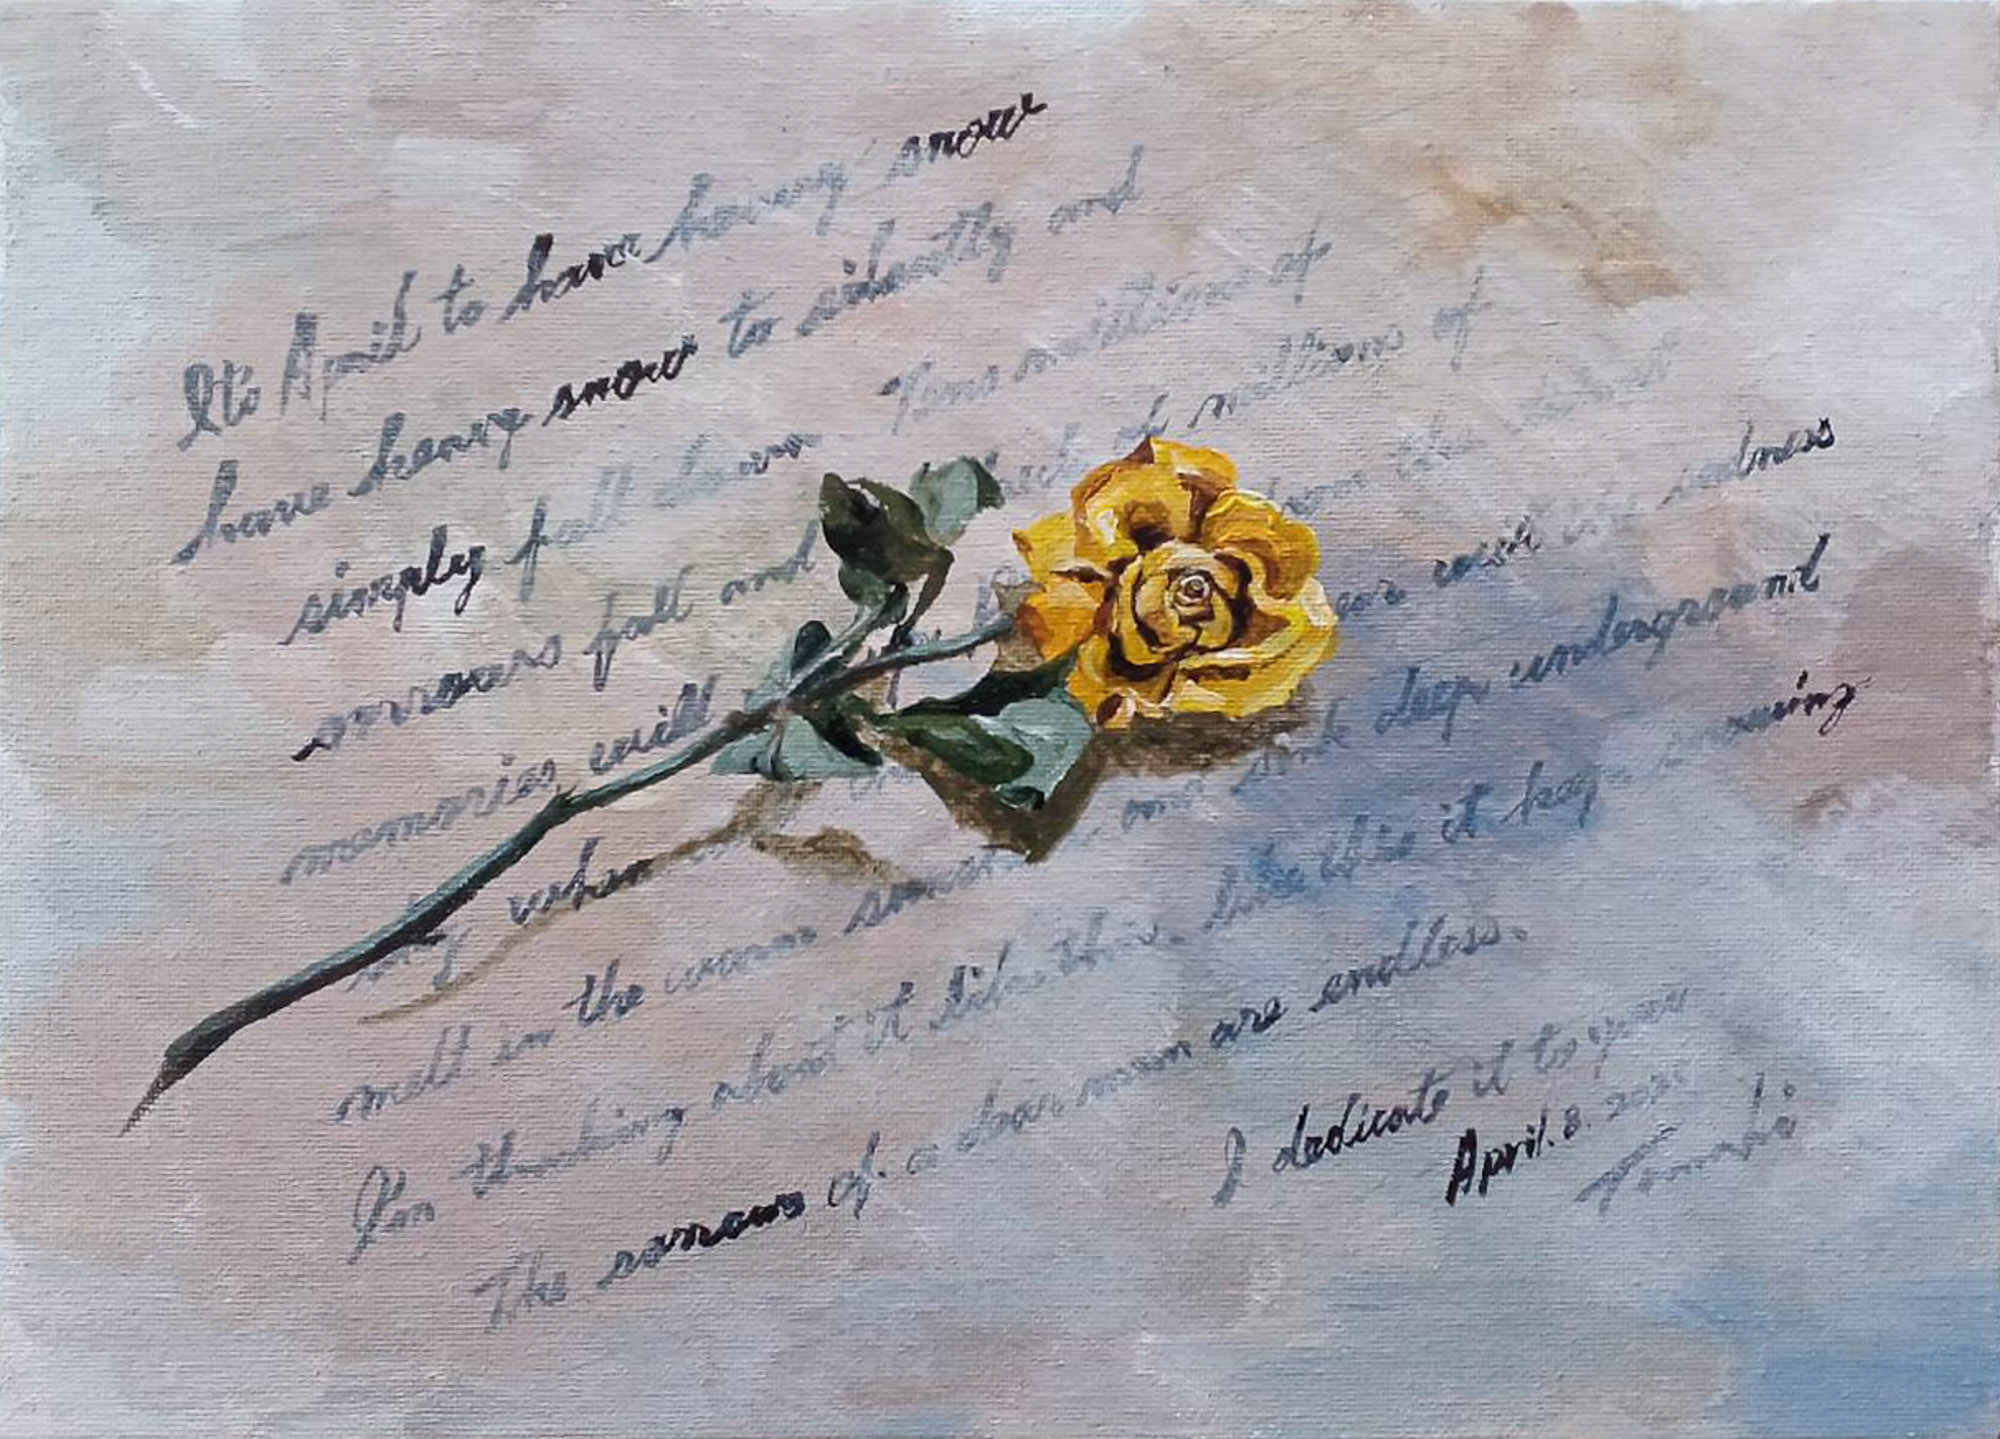 It's April to have heavy snow
have heavy snow to silently and
simply fall down Tens million of
sorrows fall and of millions of
memories will from the
why when ear wish in sadness
melt in the warm and sink deep underground
I'm thinking about it like this. like this it keep snowing
The sorrows of a dear mom are endless.
I dedicate it to you
April. 8. 202